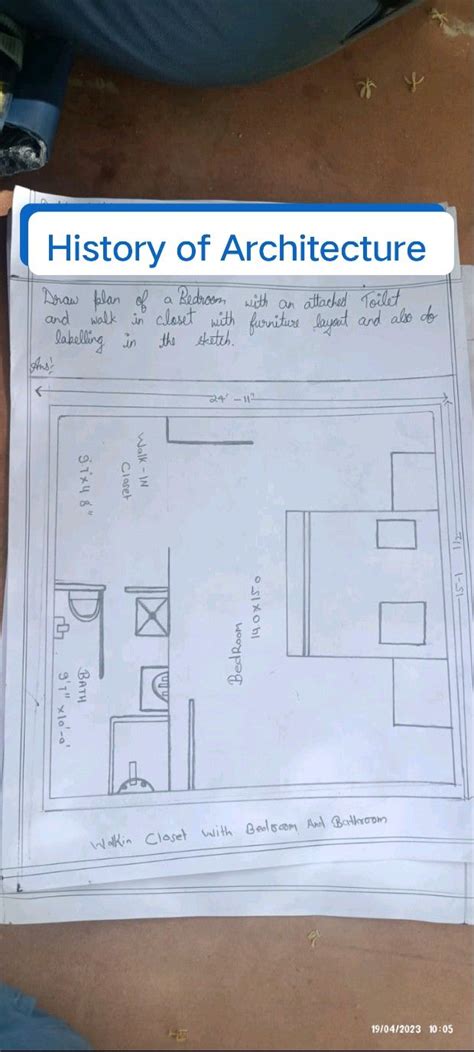 History of Architecture
Draw plan of a Bedroom with an attached Toilet
and walk in closet with furniture layout and also do
labelling in the sketch.
Ans:
24' - 11"
Walk-IN
Closet
9'7"x4'8"
15-1 1/2
BedRoom
140x150
BATH
9'7" x10'-0'
Walkin Closet With Bedroom And Bathroom
19/04/2023 10:05